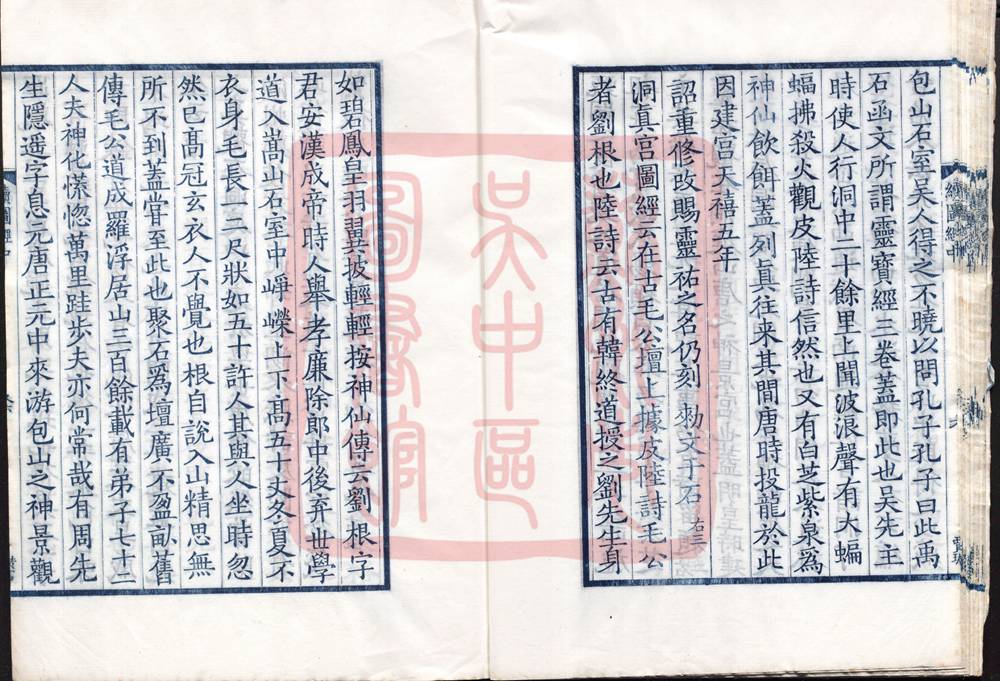 包山石室吳人得之不曉以問孔子孔子曰此禹
石函文所謂靈寶經三卷蓋即此也吳先主
時使人行洞中二十餘里上聞波浪聲有大蝙
蝠拂殺火觀皮陸詩信然也又有白芝紫泉爲
神仙飲餌蓋列真往来其間唐時投龍於此
因建宫天禧五年
詔重修改賜靈祐之名仍刻 勑文于石
洞真宫圖經云在古毛公壇上據皮陸詩毛公
者劉根也陸詩云古有韓終道授之劉先生身
如碧鳳皇羽翼披輕輕按神仙傳云劉根字
君安漢成帝時人舉孝廉除郎中後弃世學
道入嵩山石室中崢嶸上下髙五十丈冬夏不
衣身毛長一二尺狀如五十許人其與人坐時忽
然已髙冠玄衣人不覺也根自說入山精思無
所不到蓋甞至此也聚石爲壇廣不盈畝舊
傳毛公道成羅浮居山三百餘載有弟子七十二
人夫神化慌惚萬里跬步夫亦何常哉有周先
生隱遥字息元唐正元中來游包山之神景觀
續圖經中
吳中區圖書館